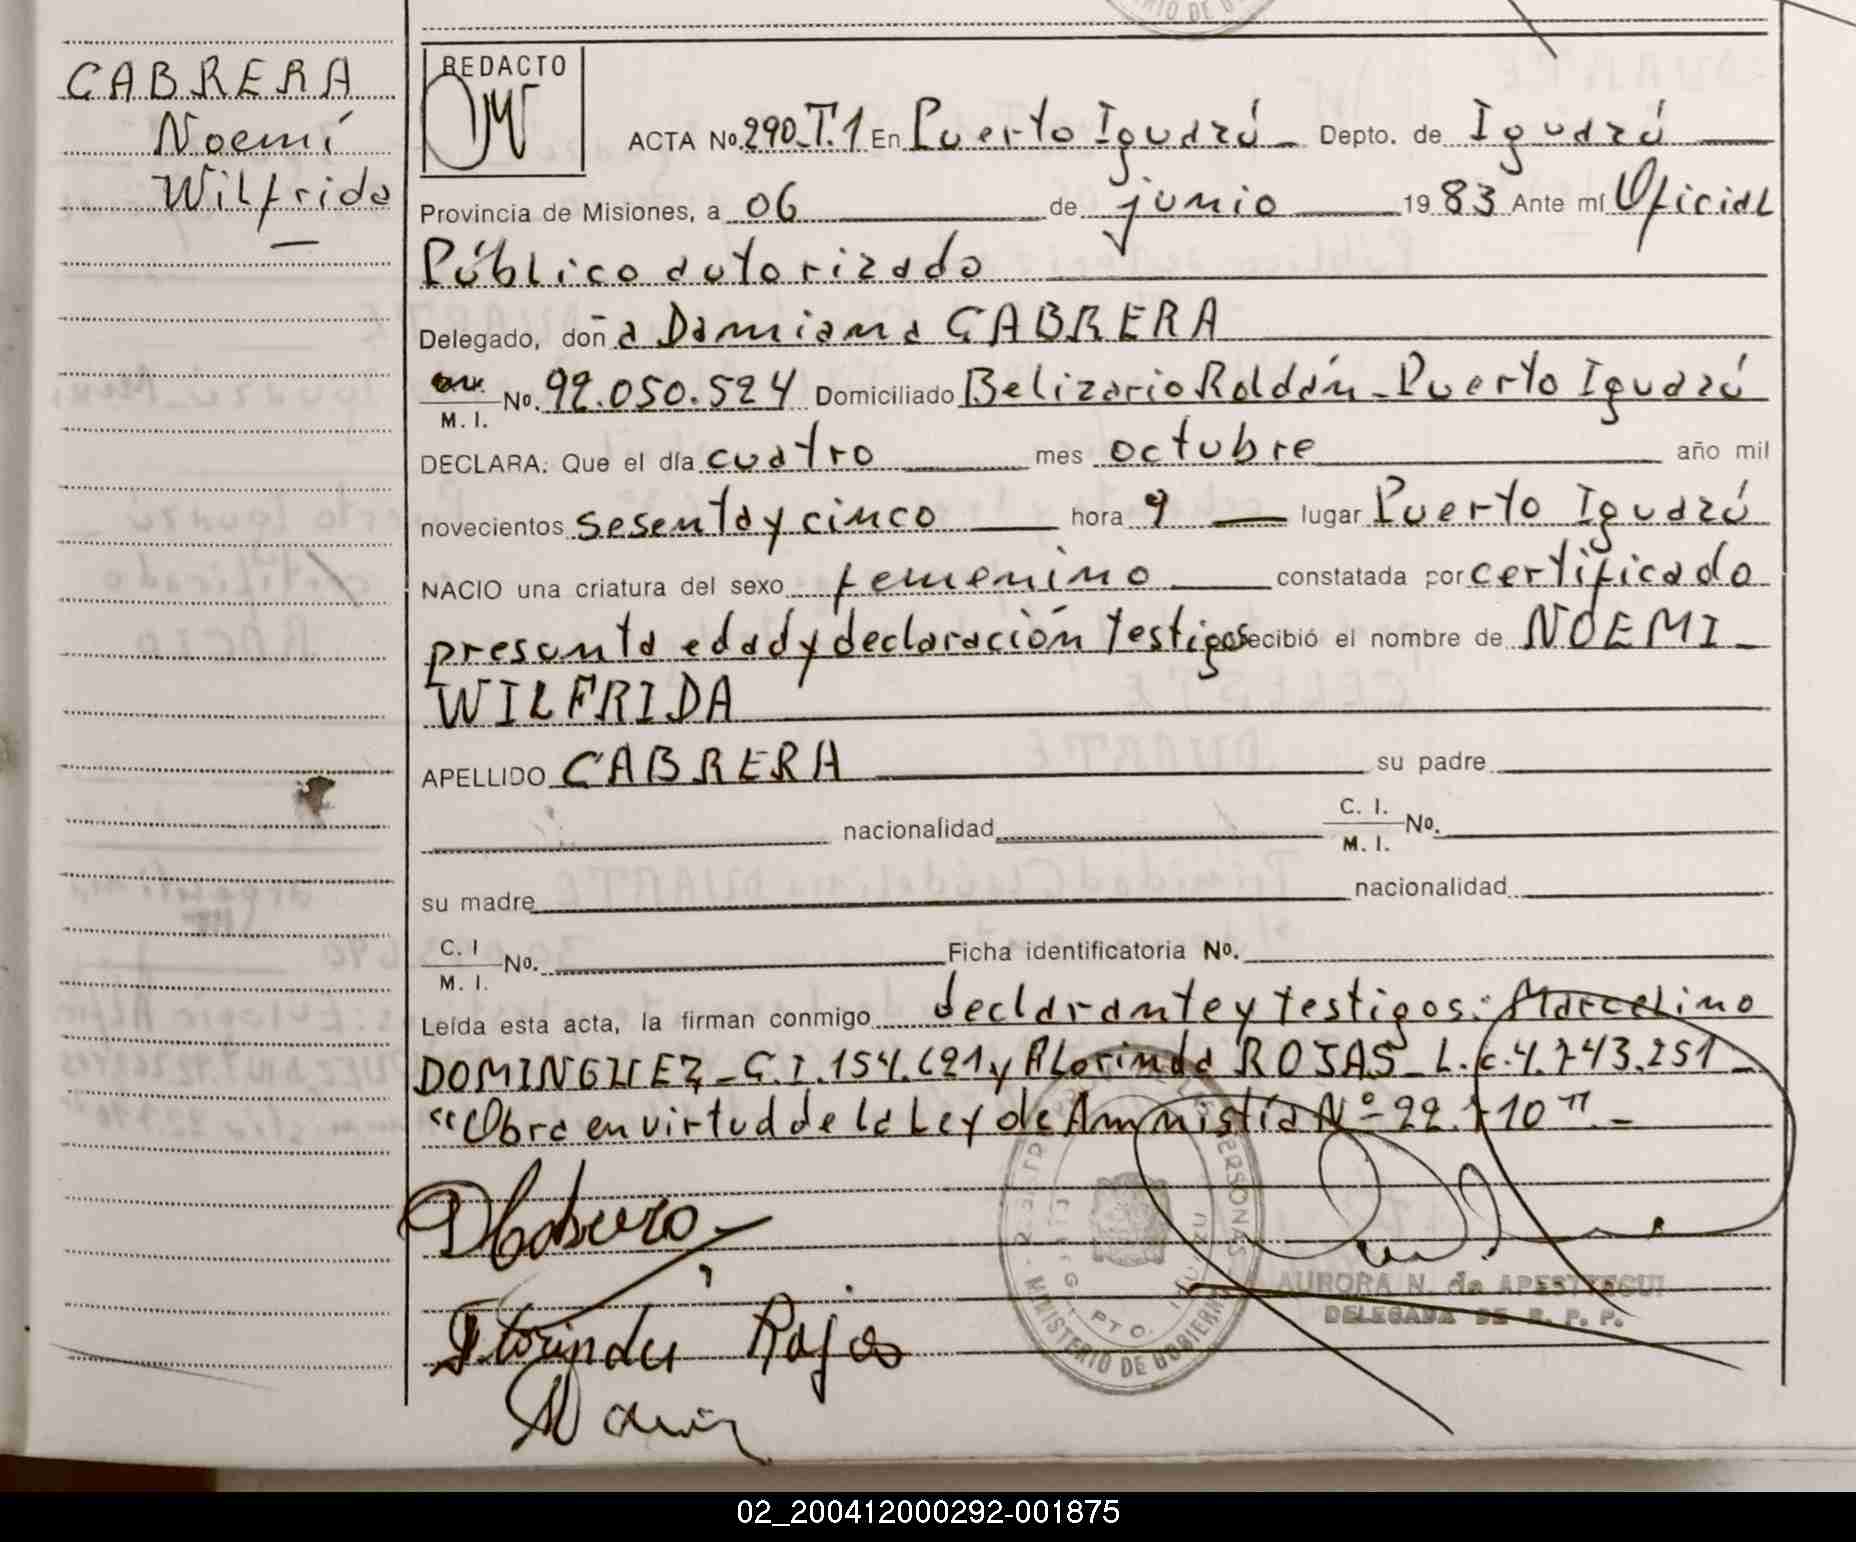 CABRERA
Noemí
Wilfrida
REDACTO
ACTA No. 290.T.1 En Puerto Iguazú Depto. de Iguazú
Provincia de Misiones, a 06 de junio 1983 Ante mí Oficial
Público autorizado
Delegado, doña Damiana CABRERA
M. I. No. 92.050.524 Domiciliado Belizario Roldán - Puerto Iguazú
DECLARA: Que el día cuatro mes octubre año mil
novecientos sesenta y cinco hora 9 lugar Puerto Iguazú
NACIO una criatura del sexo femenino constatada por certificado
presunta edad y declaración testigos recibió el nombre de NOEMI
WILFRIDA
APELLIDO CABRERA su padre
nacionalidad C. I. M. I. No.
su madre nacionalidad
C. I M. I. No. Ficha identificatoria No.
Leída esta acta, la firman conmigo declarante y testigos: Marcelino
DOMINGUEZ - C.I. 154.621 y Florinda ROJAS - L.C. 4.743.251 -
"Obra en virtud de la Ley de Amnistía Nº 22.710". -
DCabrera
Florinda Rojas
MINISTERIO DE GOBIERNO
PERSONAS
AURORA N. de APESTEGUI
DELEGADA DE R. P. P.
02_200412000292-001875